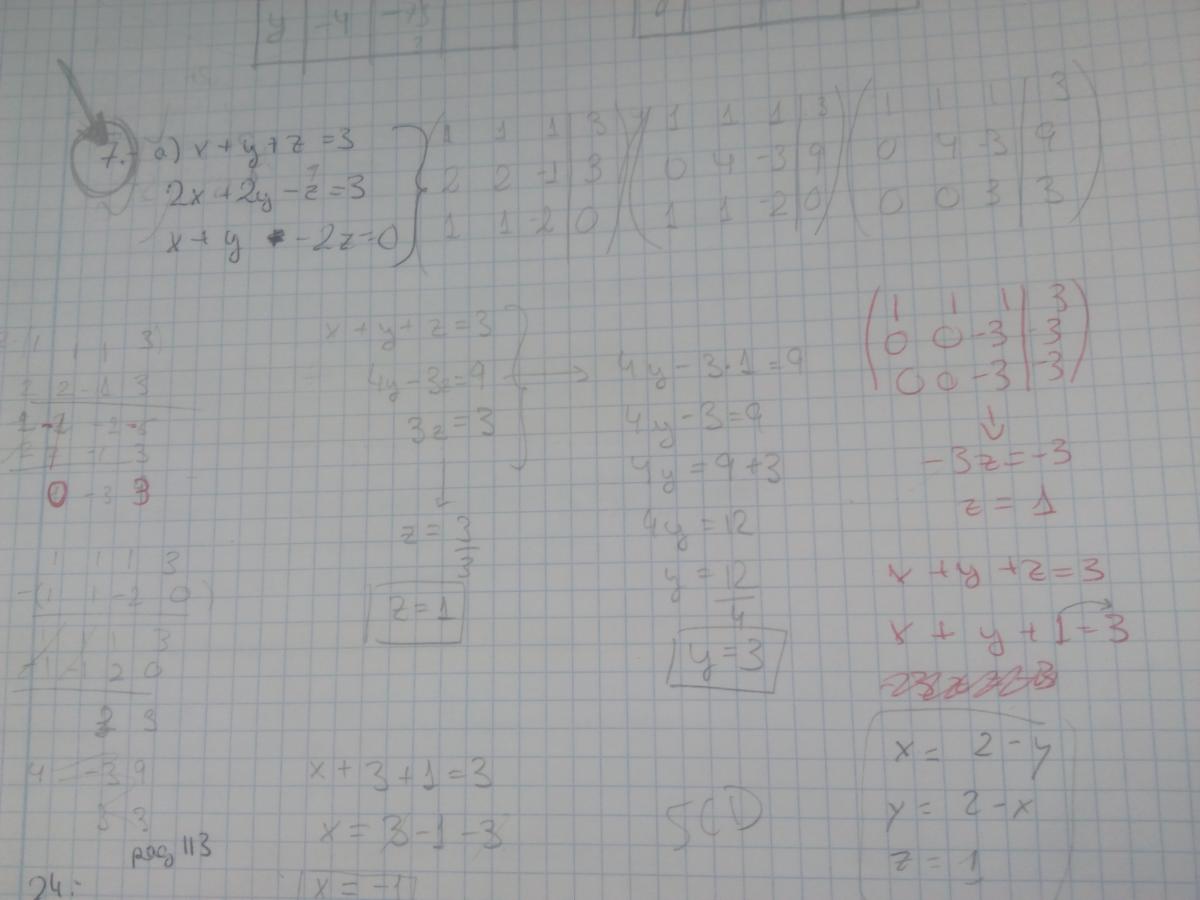 y -4
7. a) x + y + z = 3
2x + 2y - z = 3
x + y - 2z = 0
1 1 1 | 3
2 2 -1 | 3
1 1 -2 | 0
1 1 1 | 3
0 4 -3 | 9
1 1 -2 | 0
1 1 1 | 3
0 4 -3 | 9
0 0 3 | 3
2 2 -1 3
0 -3 3
1 1 1 3
-(1 1 -2 0)
1 1 1 3
-1 -1 2 0
3 3
4 -3 9
3 3
pag 113
24:
x + y + z = 3
4y - 3z = 9
3z = 3
z = 3/3
z = 1
x + 3 + 1 = 3
x = 3 - 1 - 3
x = -1
4y - 3·1 = 9
4y - 3 = 9
4y = 9 + 3
4y = 12
y = 12/4
y = 3
SCI
1 1 1 | 3
0 0 -3 | -3
0 0 -3 | -3
-3z = -3
z = 1
x + y + z = 3
x + y + 1 = 3
x = 2 - y
y = 2 - x
z = 1